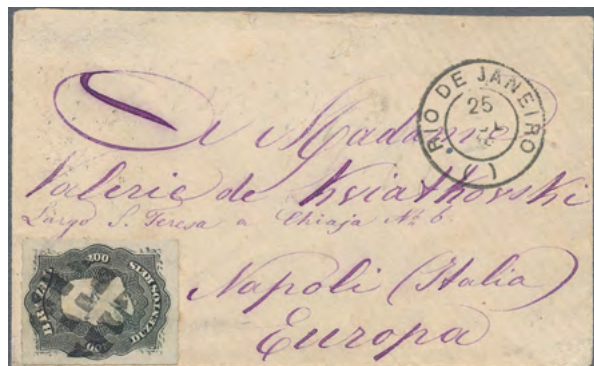 RIO DE JANEIRO
25
A Madame
Valerie de Kviatkovski
Largo S. Teresa a Chiaja No 6.
Napoli (Italia)
Europa
BRAZIL
200
DUZENTOS REIS